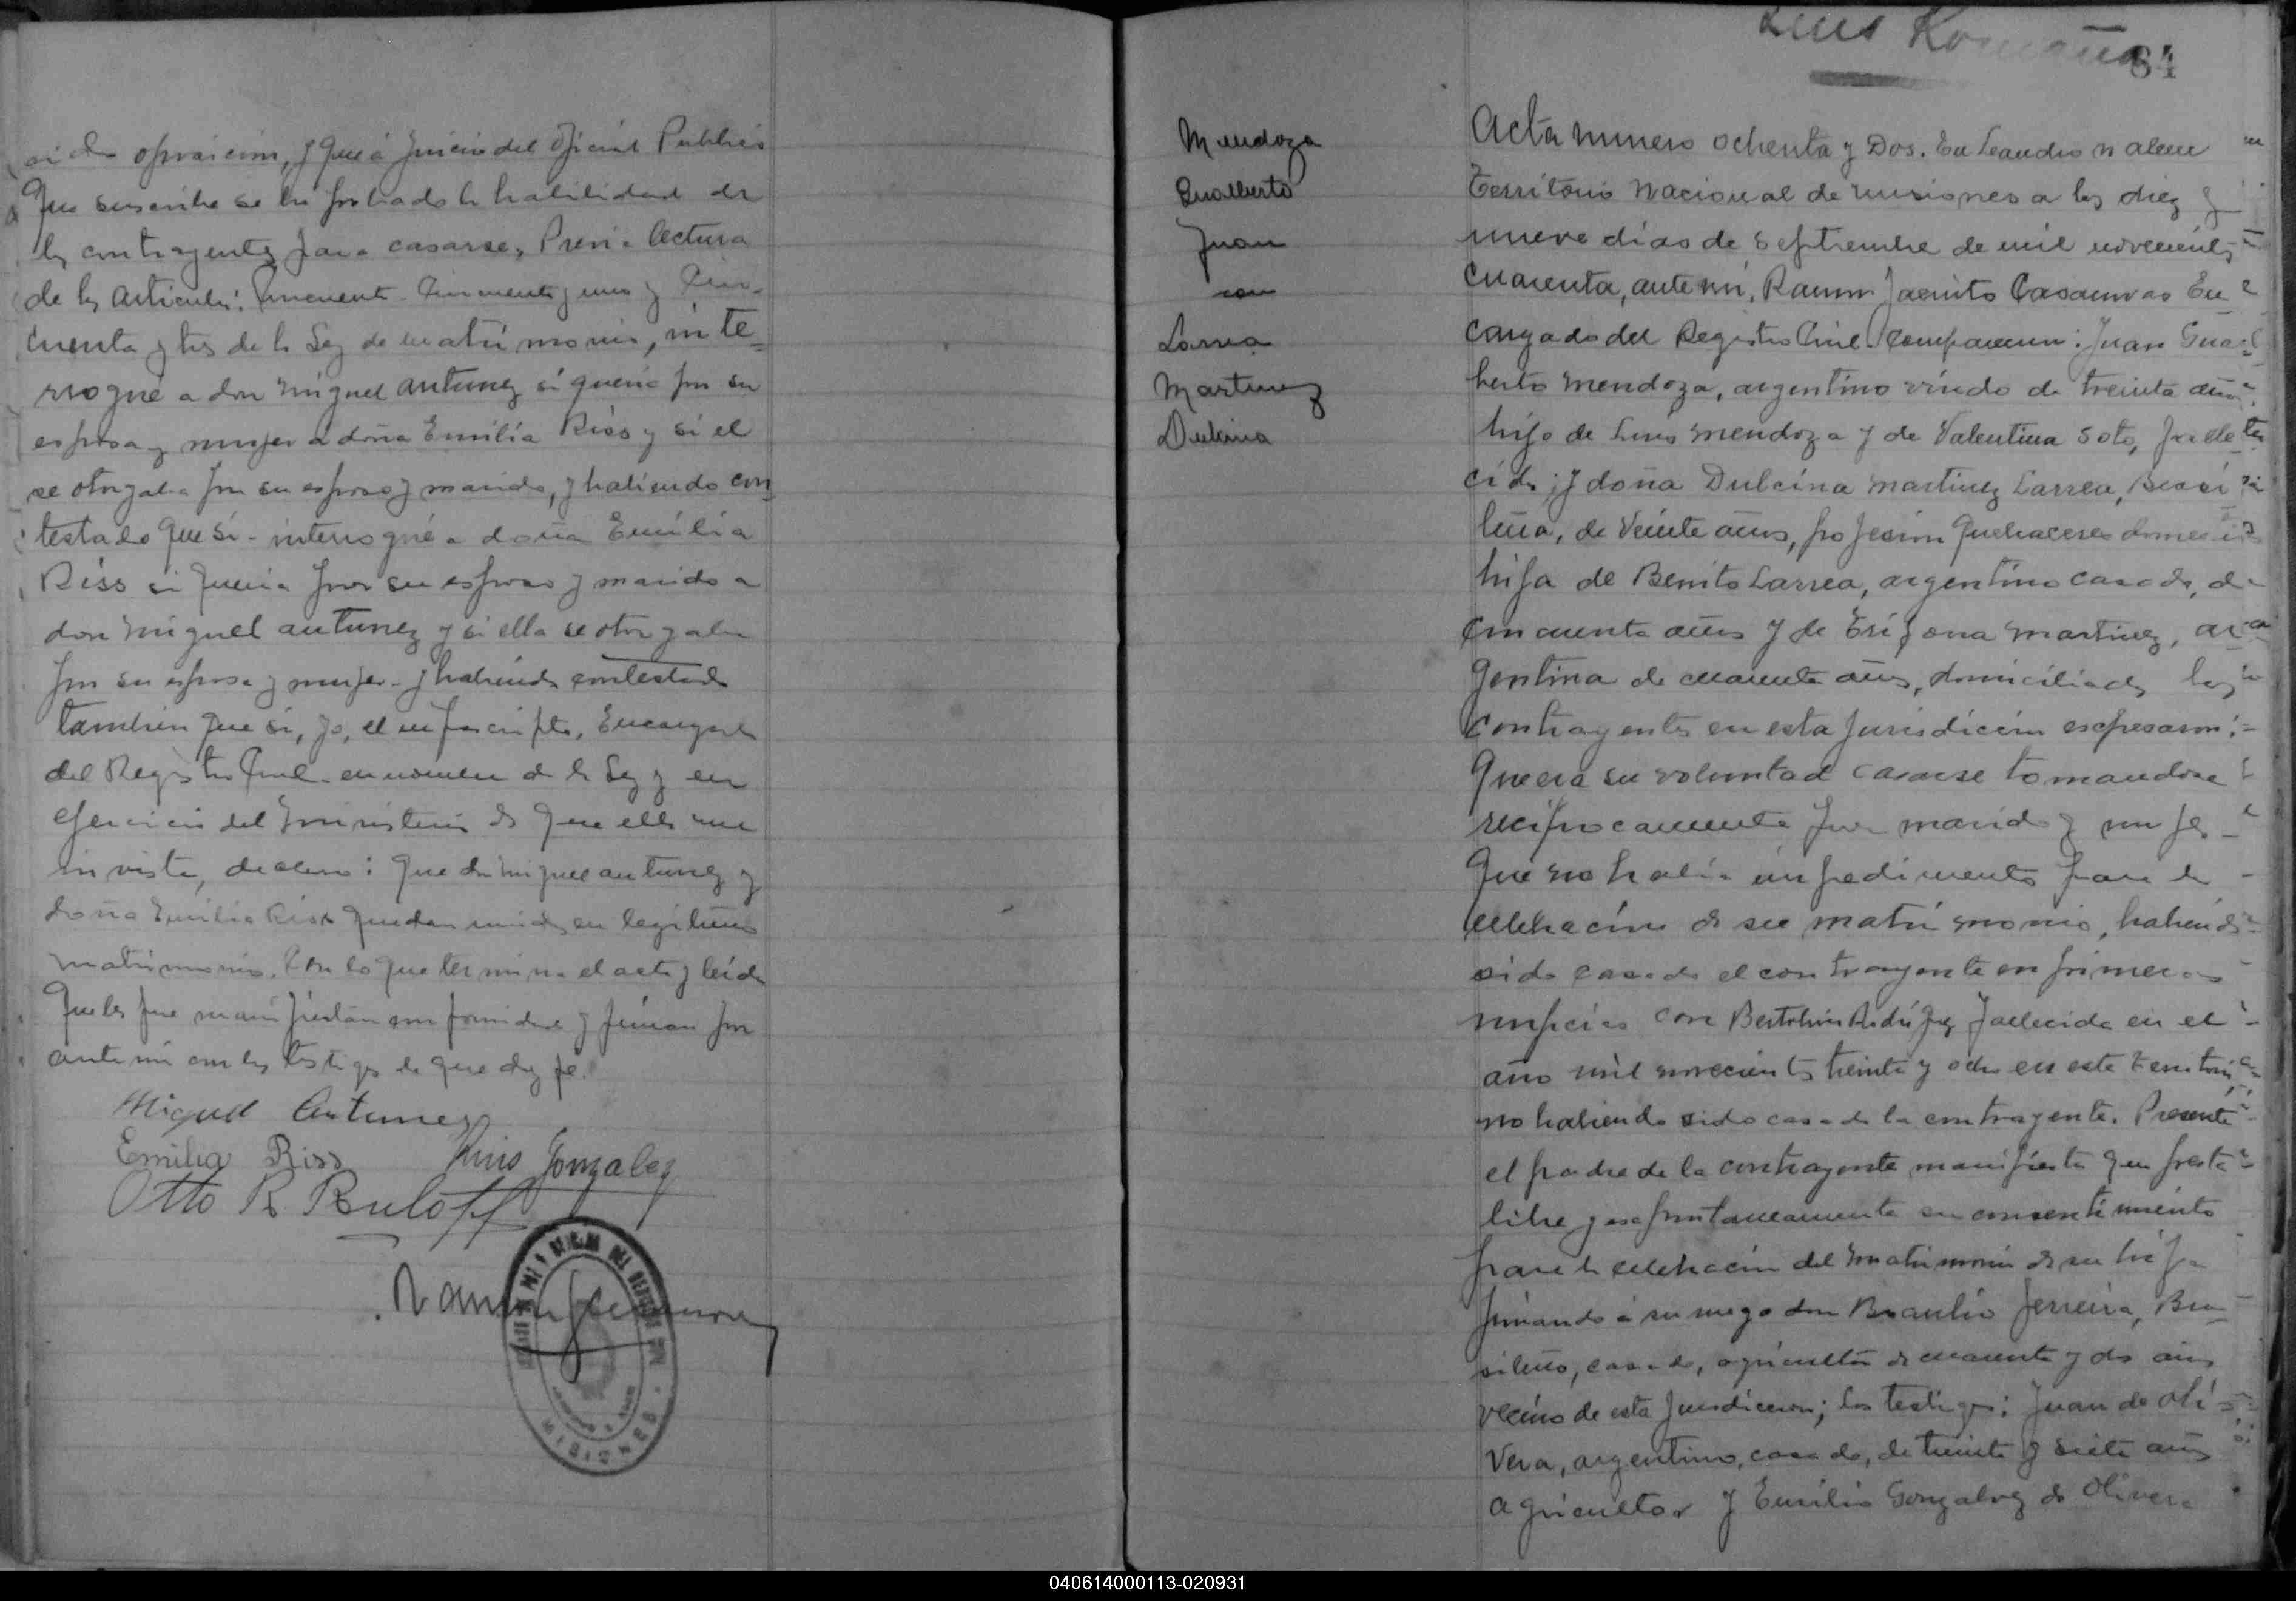 sido oposición, y que a juicio del Oficial Publico
que suscribe se ha probado la habilidad de
los contrayentes para casarse, Previa lectura
de los articulos: Cincuenta - Cincuenta y uno y Cin-
cuenta y tres de la Ley de matrimonio, inte=
rrogué a don Miguel Antunez si queria por su
esposa y mujer a doña Emilia Riss y si el
se otorgaba por su esposo y marido, y habiendo con
testado que si - interrogué a doña Emilia
Riss si queria por su esposo y marido a
don Miguel antunez y si ella se otorgaba
por su esposa y mujer - y habiendo contestado
tambien que si, yo, el infrascripto, Encargado
del Registro Civil - en nombre de la Ley y en
ejercicio del ministerio de que ella me
inviste, declaro: que don Miguel antunez y
doña Emilia Riss quedan unidos en legitimo
matrimonio. Con lo que termina el acto y leida
que les fue manifiestan conformidad y firman por
ante mi con los testigos de que doy fé.
Miguel Antunez
Emilia Riss
Gonzalez
Otto R. Ruloff
MISIONES
Luis Romaña
64
Mendoza
Gualberto
Juan
con
Larrea
Martinez
Dulcina
Acta numero ochenta y Dos. En Leandro n alem
Territorio Nacional de misiones a los diez y
nueve dias de Septiembre de mil novecientos
cuarenta, ante mi, Ramon Jacinto Casanovas En
cargado del Registro Civil. Comparecen: Juan Gual
berto Mendoza, argentino viudo de treinta años
hijo de Luis Mendoza y de Valentina Soto, falle
cidos; y doña Dulcina Martinez Larrea, Brasi
leña, de veinte años, profesion quehaceres domesticos
hija de Benito Larrea, argentino casado, de
cincuenta años y de Martinez, ar
gentina de cuarenta años, domiciliados los
contrayentes en esta Jurisdicción expresaron:
Que era su voluntad casarse tomandose
reciprocamente por marido y mujer -
Que no habia impedimento para la
celebración de su matrimonio, habiendo
sido casado el contrayente en primeras
nupcias con fallecida en el
año mil novecientos treinta y ocho en este Territorio,
no habiendo sido casada la contrayente. Presente
el padre de la contrayente manifiesta que presta
libre y espontaneamente su consentimiento
para la celebración del matrimonio de su hija
firmando a su ruego don Braulio Ferreira, Bra
sileño, casado, agricultor de cuarenta y dos años
vecino de esta Jurisdiccion; los testigos: Juan de Oli=
vera, argentino, casado, de treinta y siete años
agricultor y Emilia Gonzalvez de Olivera
040614000113-020931